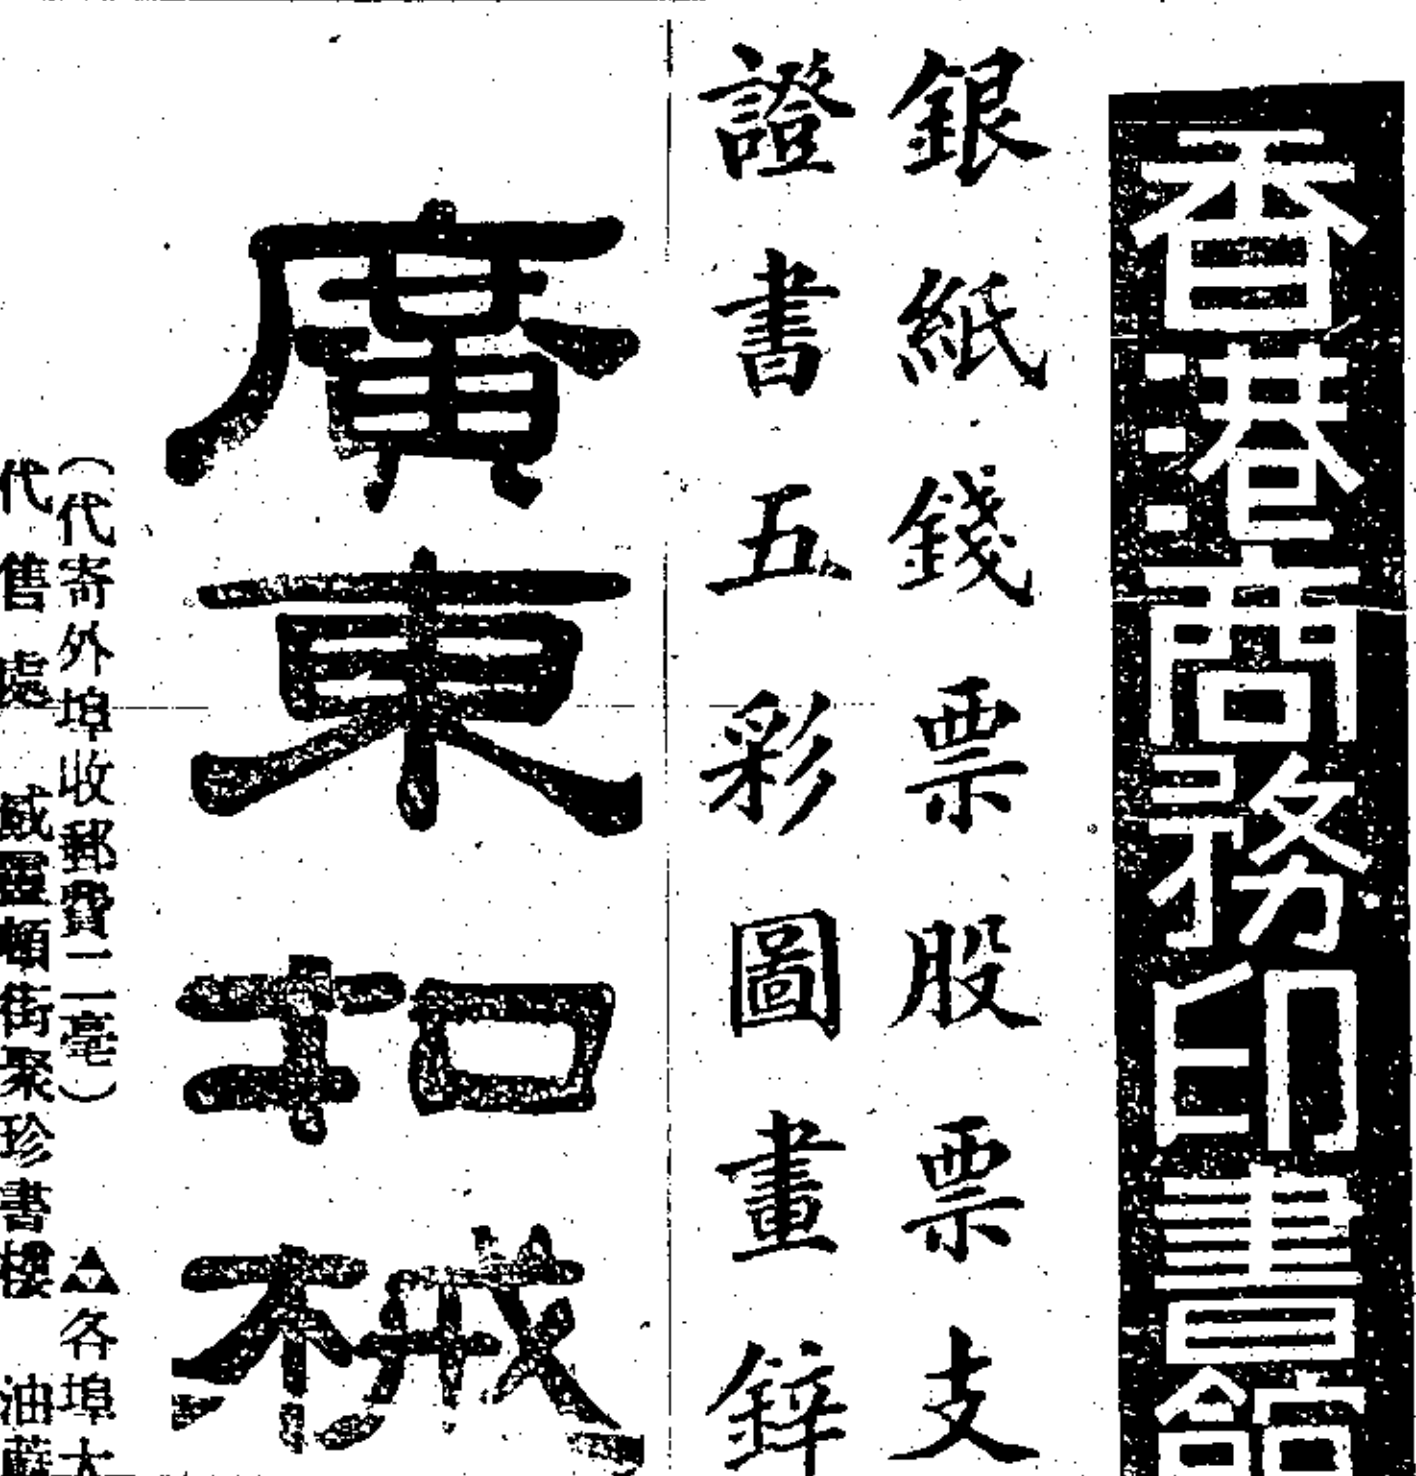 香港商務印書館
銀紙錢票股票支
證書五彩圖畫鋅
廣東扣械
(代寄外埠收郵費二毫)▲各埠大
代售處 威靈頓街聚珍書樓 油蔴